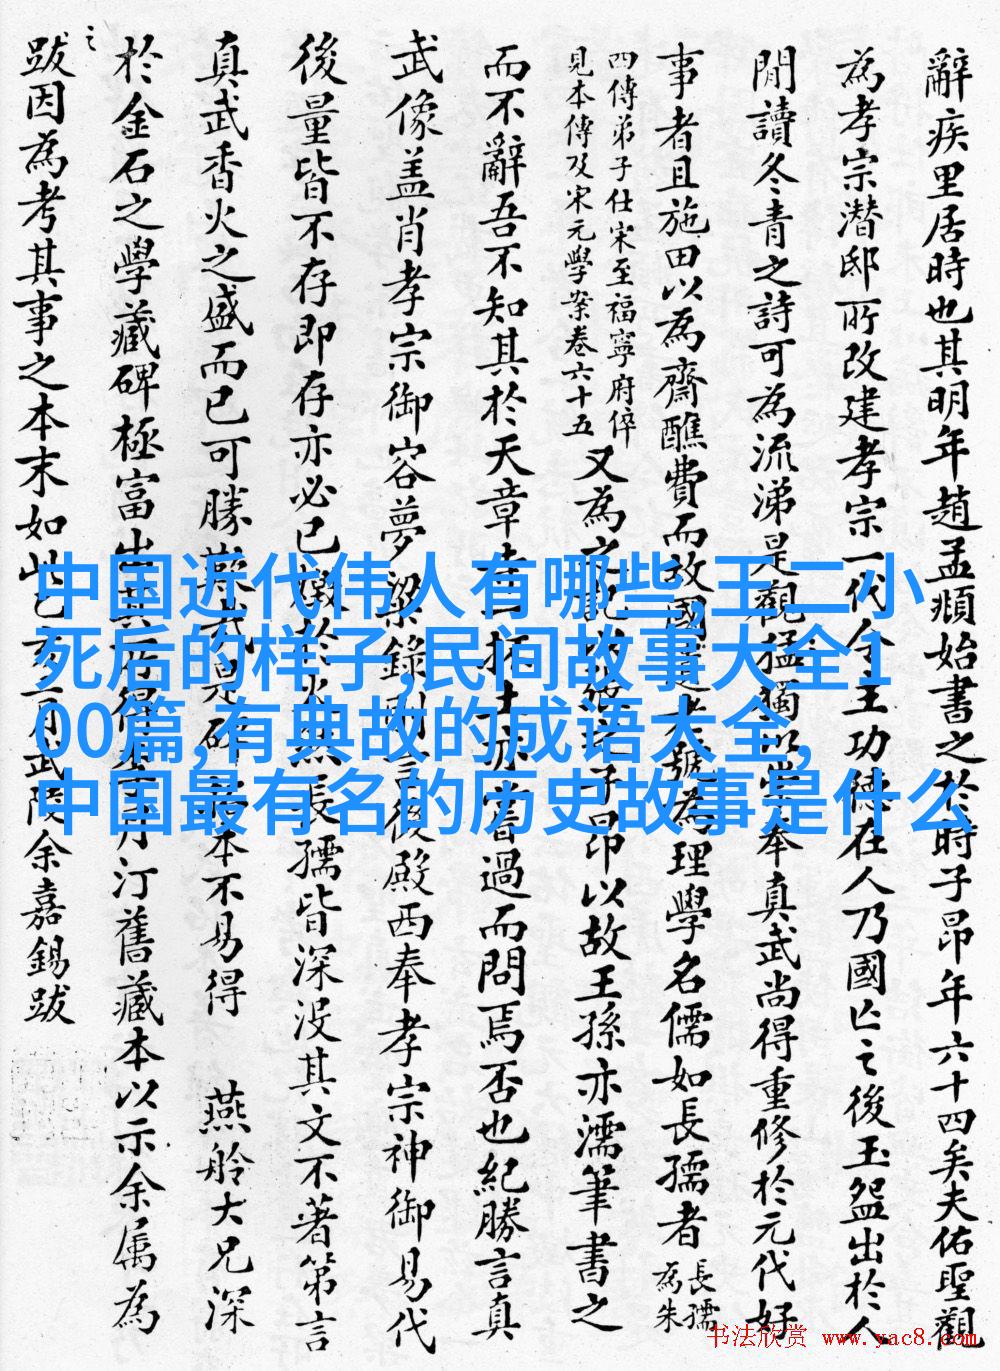 辭疾里居時也其明年趙孟頫始書之於時子昂年六十四矣夫佑聖觀
為孝宗潛邸所改建孝宗一代令主功德在人乃國亡之後玉盌出於人
間讀冬青之詩可為流涕是觀猛獨以崇奉真武尚得重修於元代好
事者且施田以為齋醮費而故國遺老號為理學名儒如長孺者長孺為朱
四傳弟子仕宋至福寧府倅
見本傳及宋元學案卷六十五
又為之記故紙子昂以故王孫亦濡筆書之
而不辭吾不知其於天章 柘 亦嘗過而問焉否也紀勝言真
武像盖肖孝宗御容夢粱錄則言後殿西奉孝宗神御易代
後量皆不存即存亦必已燬於 長孺皆深没其文不著第言
真武香火之盛而已可勝歎哉見碑 本不易得 燕舲大兄深
於金石之學藏碑極富出其所得 汀舊藏本以示余属為
之
跋因為考其事之本末如此 武陵余嘉錫跋
中国近代伟人有哪些,王二小
死后的样子,民间故事大全1
00篇,有典故的成语大全,
中国最有名的历史故事是什么
书法欣赏 www.yac8.com